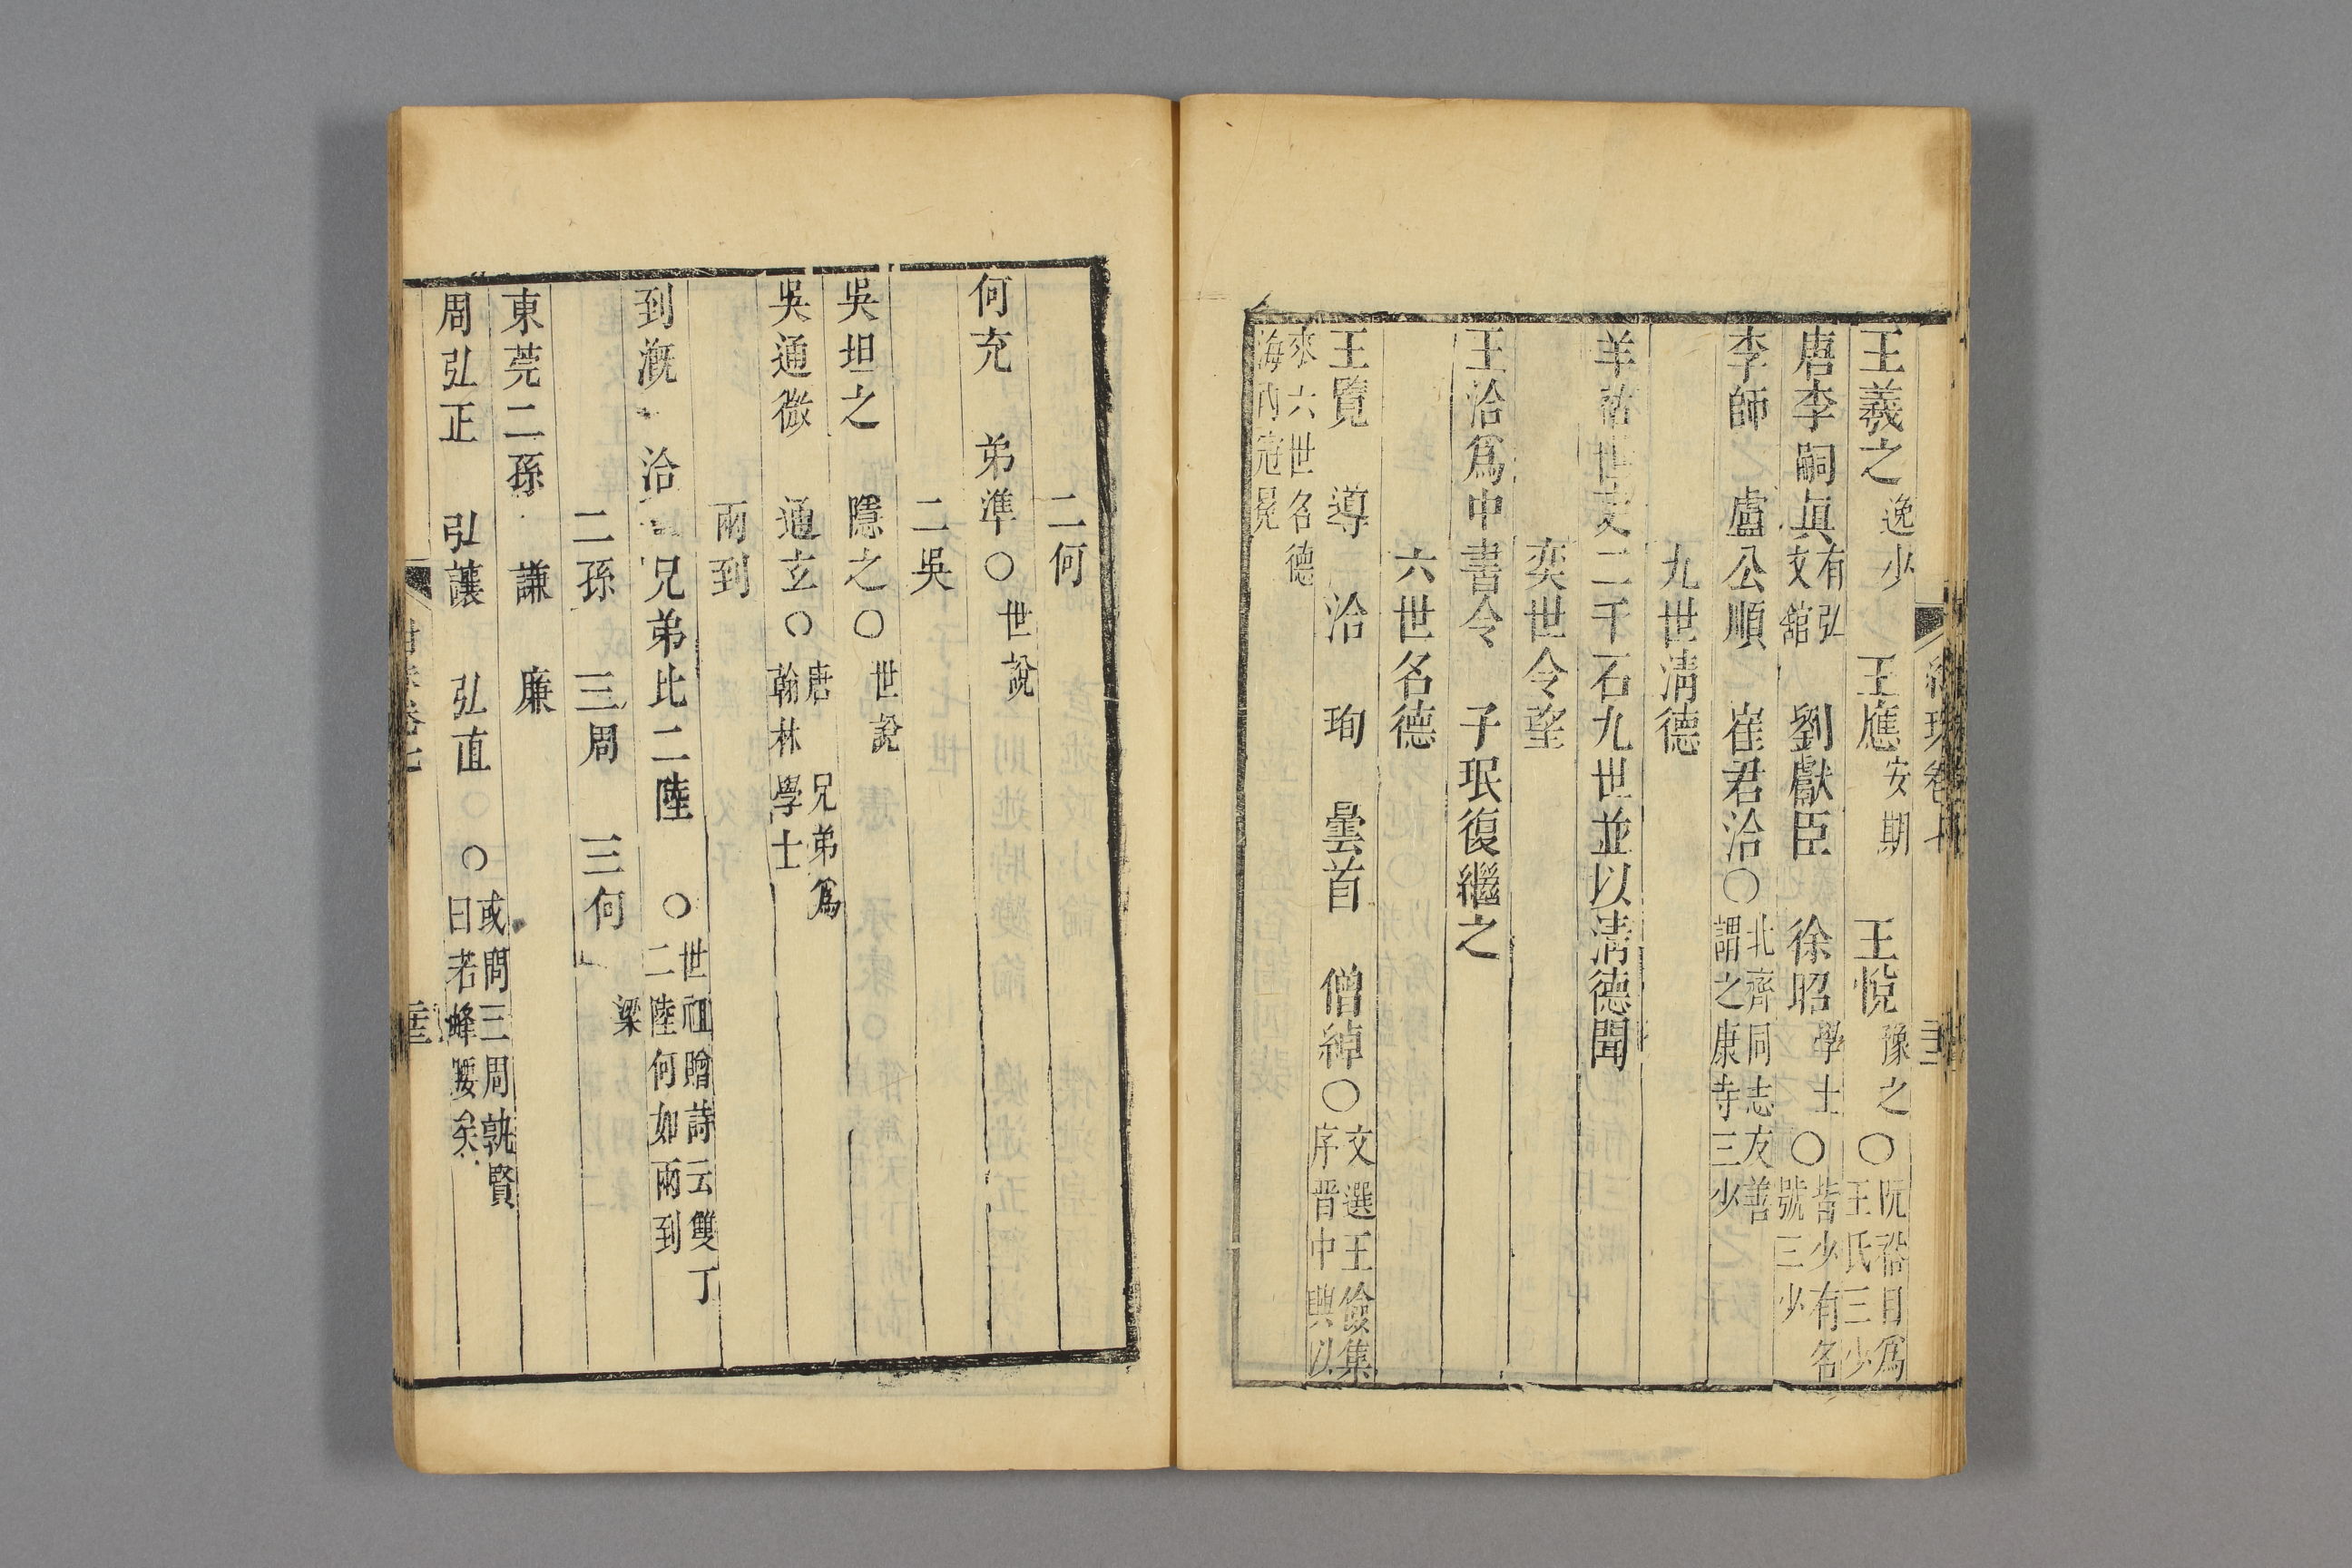 王羲之逸少 王應安期 王悅豫之○阮裕目爲王氏三少
唐李嗣真有弘文舘 劉獻臣 徐昭學士○皆少有名號三少
李師 盧公順 崔君洽○北齊同志友善謂之康寺三少
九世淸德
羊 世 二千石九世並以淸德聞
奕世令望
王洽爲中書令 子珉復繼之
六世名德
王覽 導 洽 珣 曇首 僧綽○文選王儉集序晋中興以
來六世名德海內冠冕
二何
何充 弟準○世說
二吳
吳坦之 隱之○世說
吳通微 通玄○唐翰林學士兄弟爲
兩到
到溉 洽 兄弟比二陸 ○世祖贈詩云雙丁二陸何如兩到 梁
二孫 三周 三何
東莞二孫 謙 廉
周弘正 弘讓 弘直 ○或問三周孰賢曰若蜂腰矣
卷七